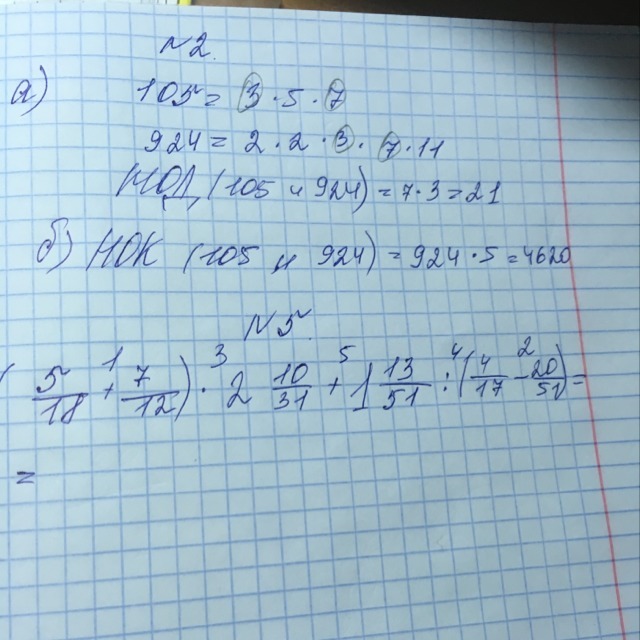 N2.
а) 105 = 3 · 5 · 7
924 = 2 · 2 · 3 · 7 · 11
НОД (105 и 924) = 7 · 3 = 21
б) НОК (105 и 924) = 924 · 5 = 4620
N5.
1 3 5 4 2
(5/18 + 7/12) · 2 10/31 + 1 13/51 : (4/17 - 20/51) =
=